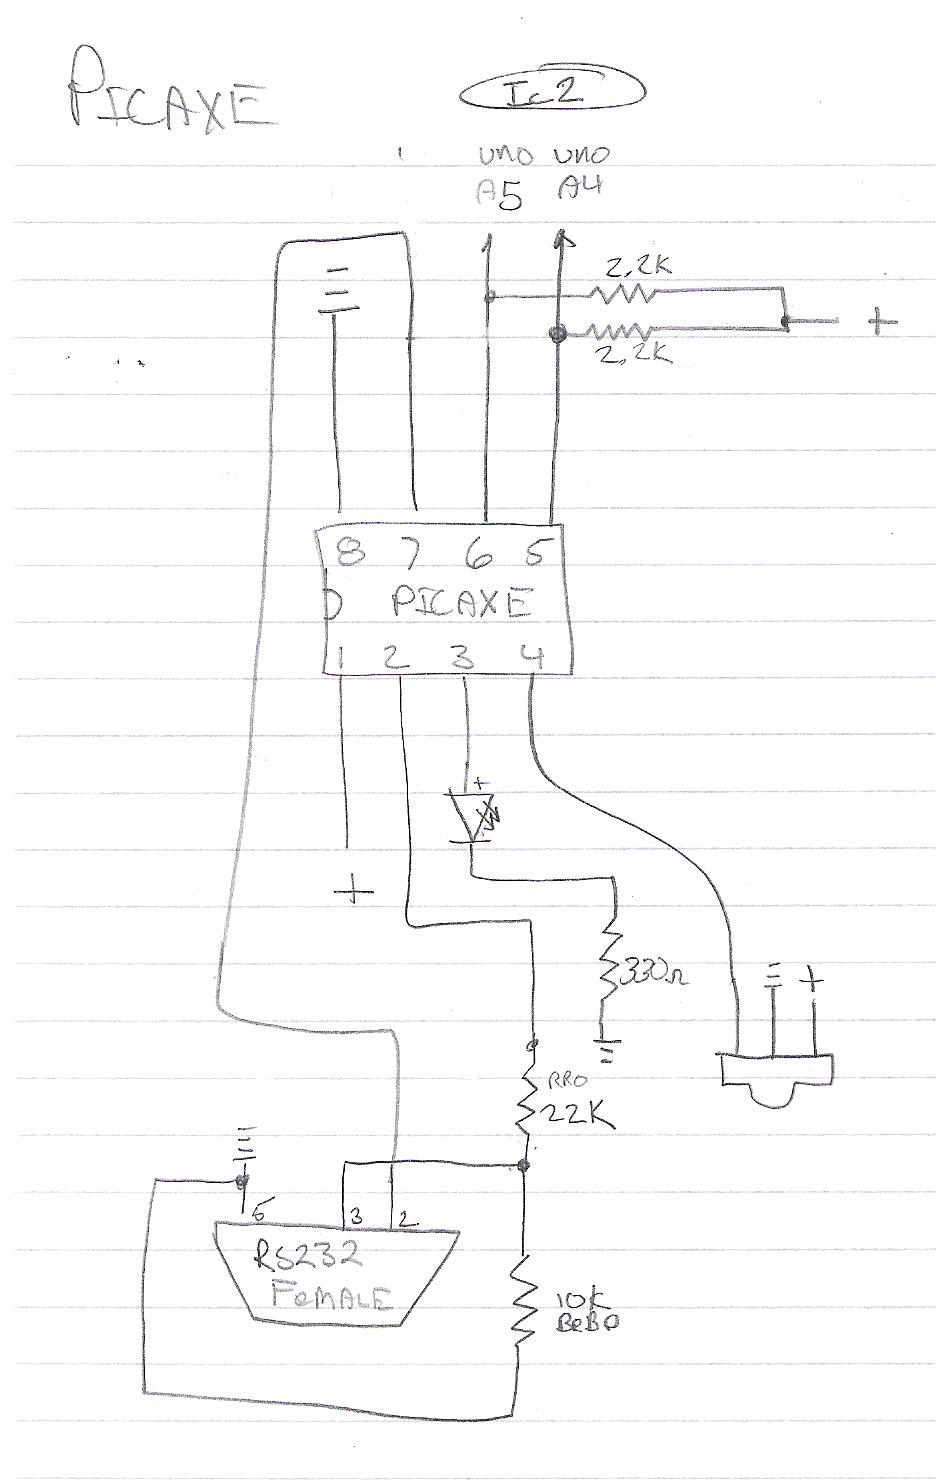 PICAXE
Ic2
UNO UNO
A5 A4
2.2K
+
2.2K
8 7 6 5
PICAXE
1 2 3 4
+
+
330Ω
+
RRO
22K
5 3 2
RS232
FeMALE
10K
BrBO